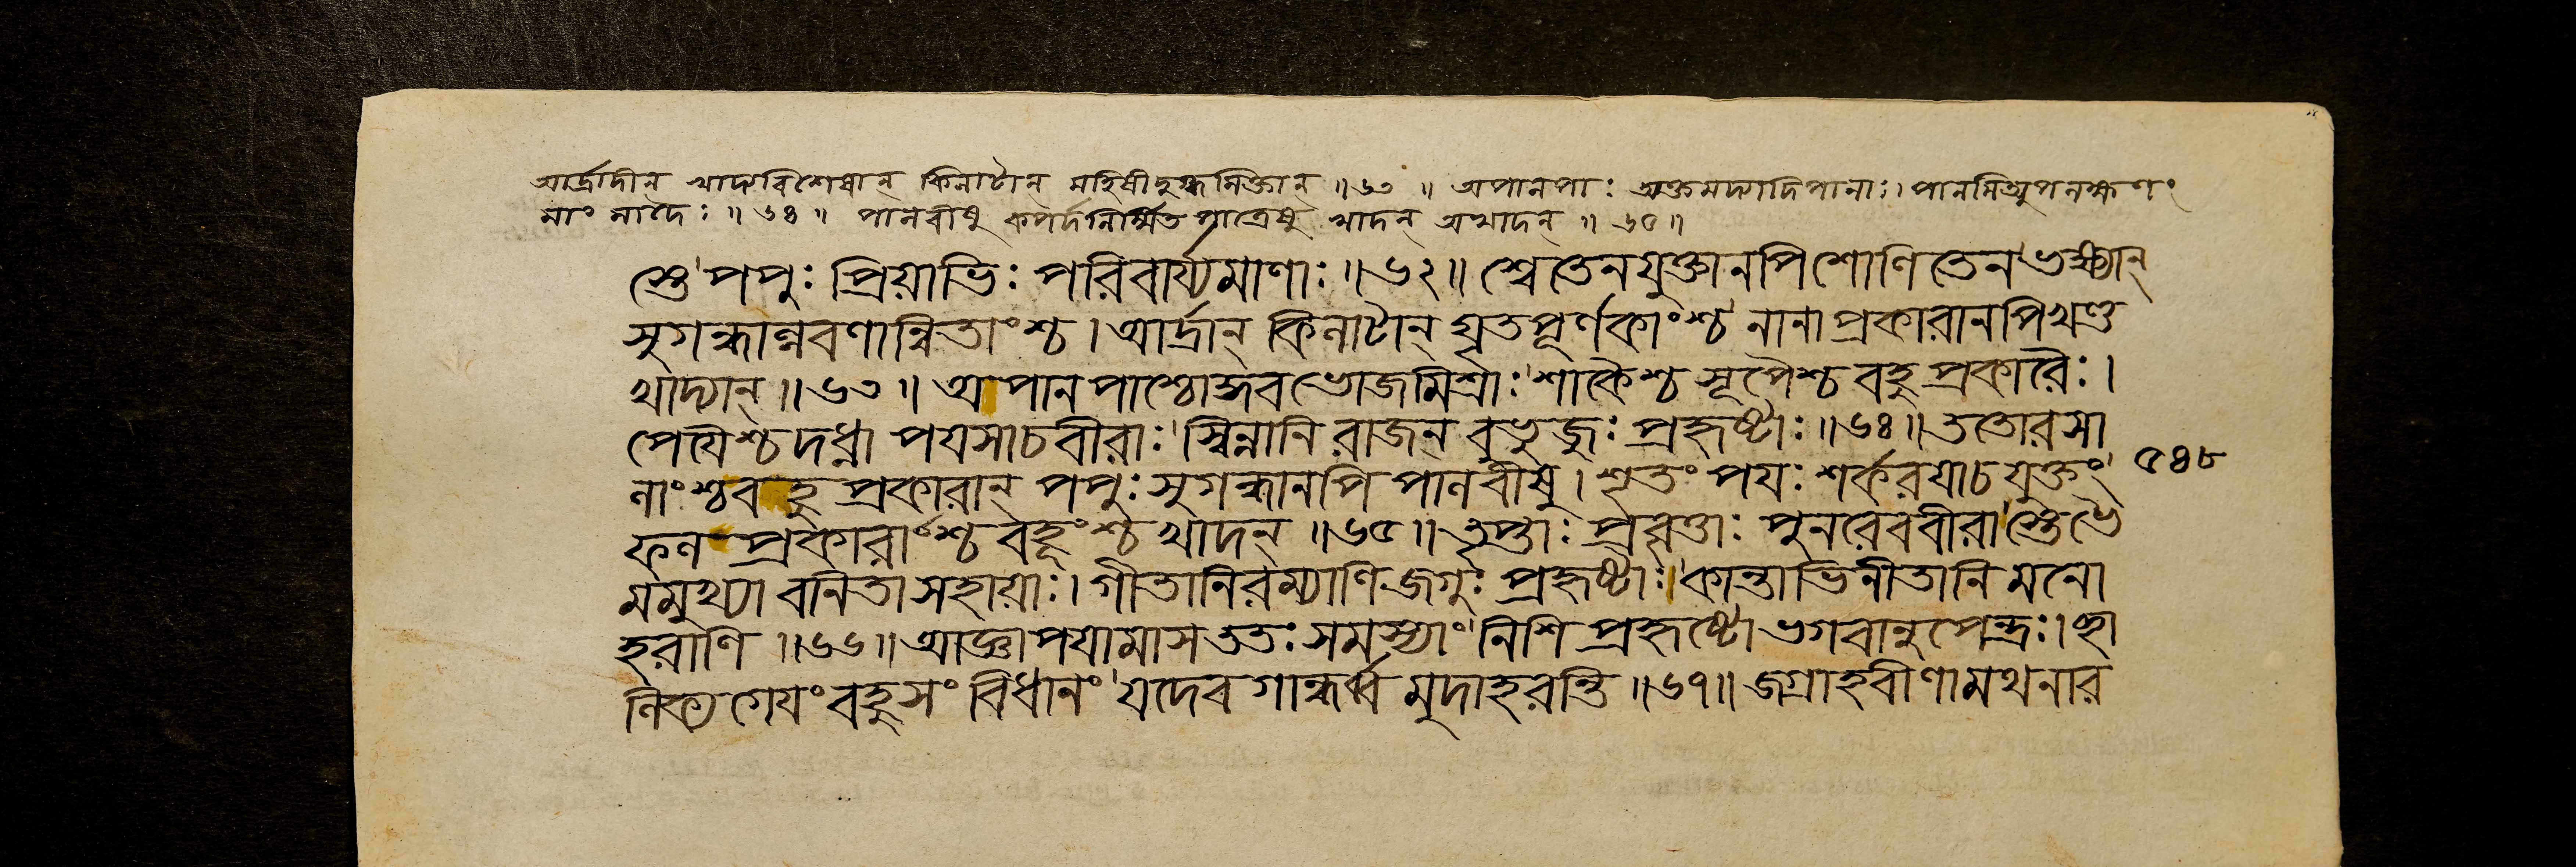 আর্দ্রাদীন্ খাদ্যবিশেষান্ কিনাটান্ মহিষীদুগ্ধসিক্তান্ ॥৬৩॥ অপানপাঃ ত্যক্তমদ্যাদিপানাঃ। পানমিত্যুপলক্ষণং
মাংসাদেঃ ॥৬৪॥ পানবীষু কপর্দনির্ম্মিতপাত্রেষু খাদন্ অখাদন্ ॥৬৫॥
স্তে পপুঃ প্রিয়াভিঃ পরিবার্য্যমাণাঃ ॥৬২॥ শ্বেতেনযুক্তানপিশোণিতেনভক্ষ্যান্
সুগন্ধাল্লবণান্বিতাংশ্চ। আর্দ্রান্ কিনাটান্ ঘৃতপূর্ণকাংশ্চ নানাপ্রকারানপিখণ্ড
খাদ্যান্ ॥৬৩॥ অপানপাশ্চোদ্ধবভোজমিশ্রাঃ শাকৈশ্চ সূপৈশ্চ বহুপ্রকারৈঃ।
পেযৈশ্চদধ্না পযসাচবীরাঃ স্বিন্নানি রাজন্ বুভুজুঃ প্রহৃষ্টাঃ ॥৬৪॥ ততোরসা
নাংশ্চবহুপ্রকারান্ পপুঃ সুগন্ধানপি পানবীষু। শৃতং পযঃ শর্করযাচযুক্তং ৫৪৮
ফলপ্রকারাংশ্চ বহূংশ্চ খাদন্ ॥৬৫॥ তৃপ্তাঃ প্রবৃত্তাঃ পুনরেববীরাস্তেভৈ
মমুখ্যা বনিতাসহায়াঃ। গীতানিরম্যাণি জগুঃ প্রহৃষ্টাঃ কান্তাভিনীতানি মনো
হরাণি ॥৬৬॥ আজ্ঞাপযামাস ততঃ সমস্যাং নিশি প্রহৃষ্টো ভগবানুপেন্দ্রঃ। ছা
লিক্যগেযং বহুসংবিধানং যদেব গান্ধর্ব্বমুদাহরন্তি ॥৬৭॥ জগ্রাহবীণামথনার